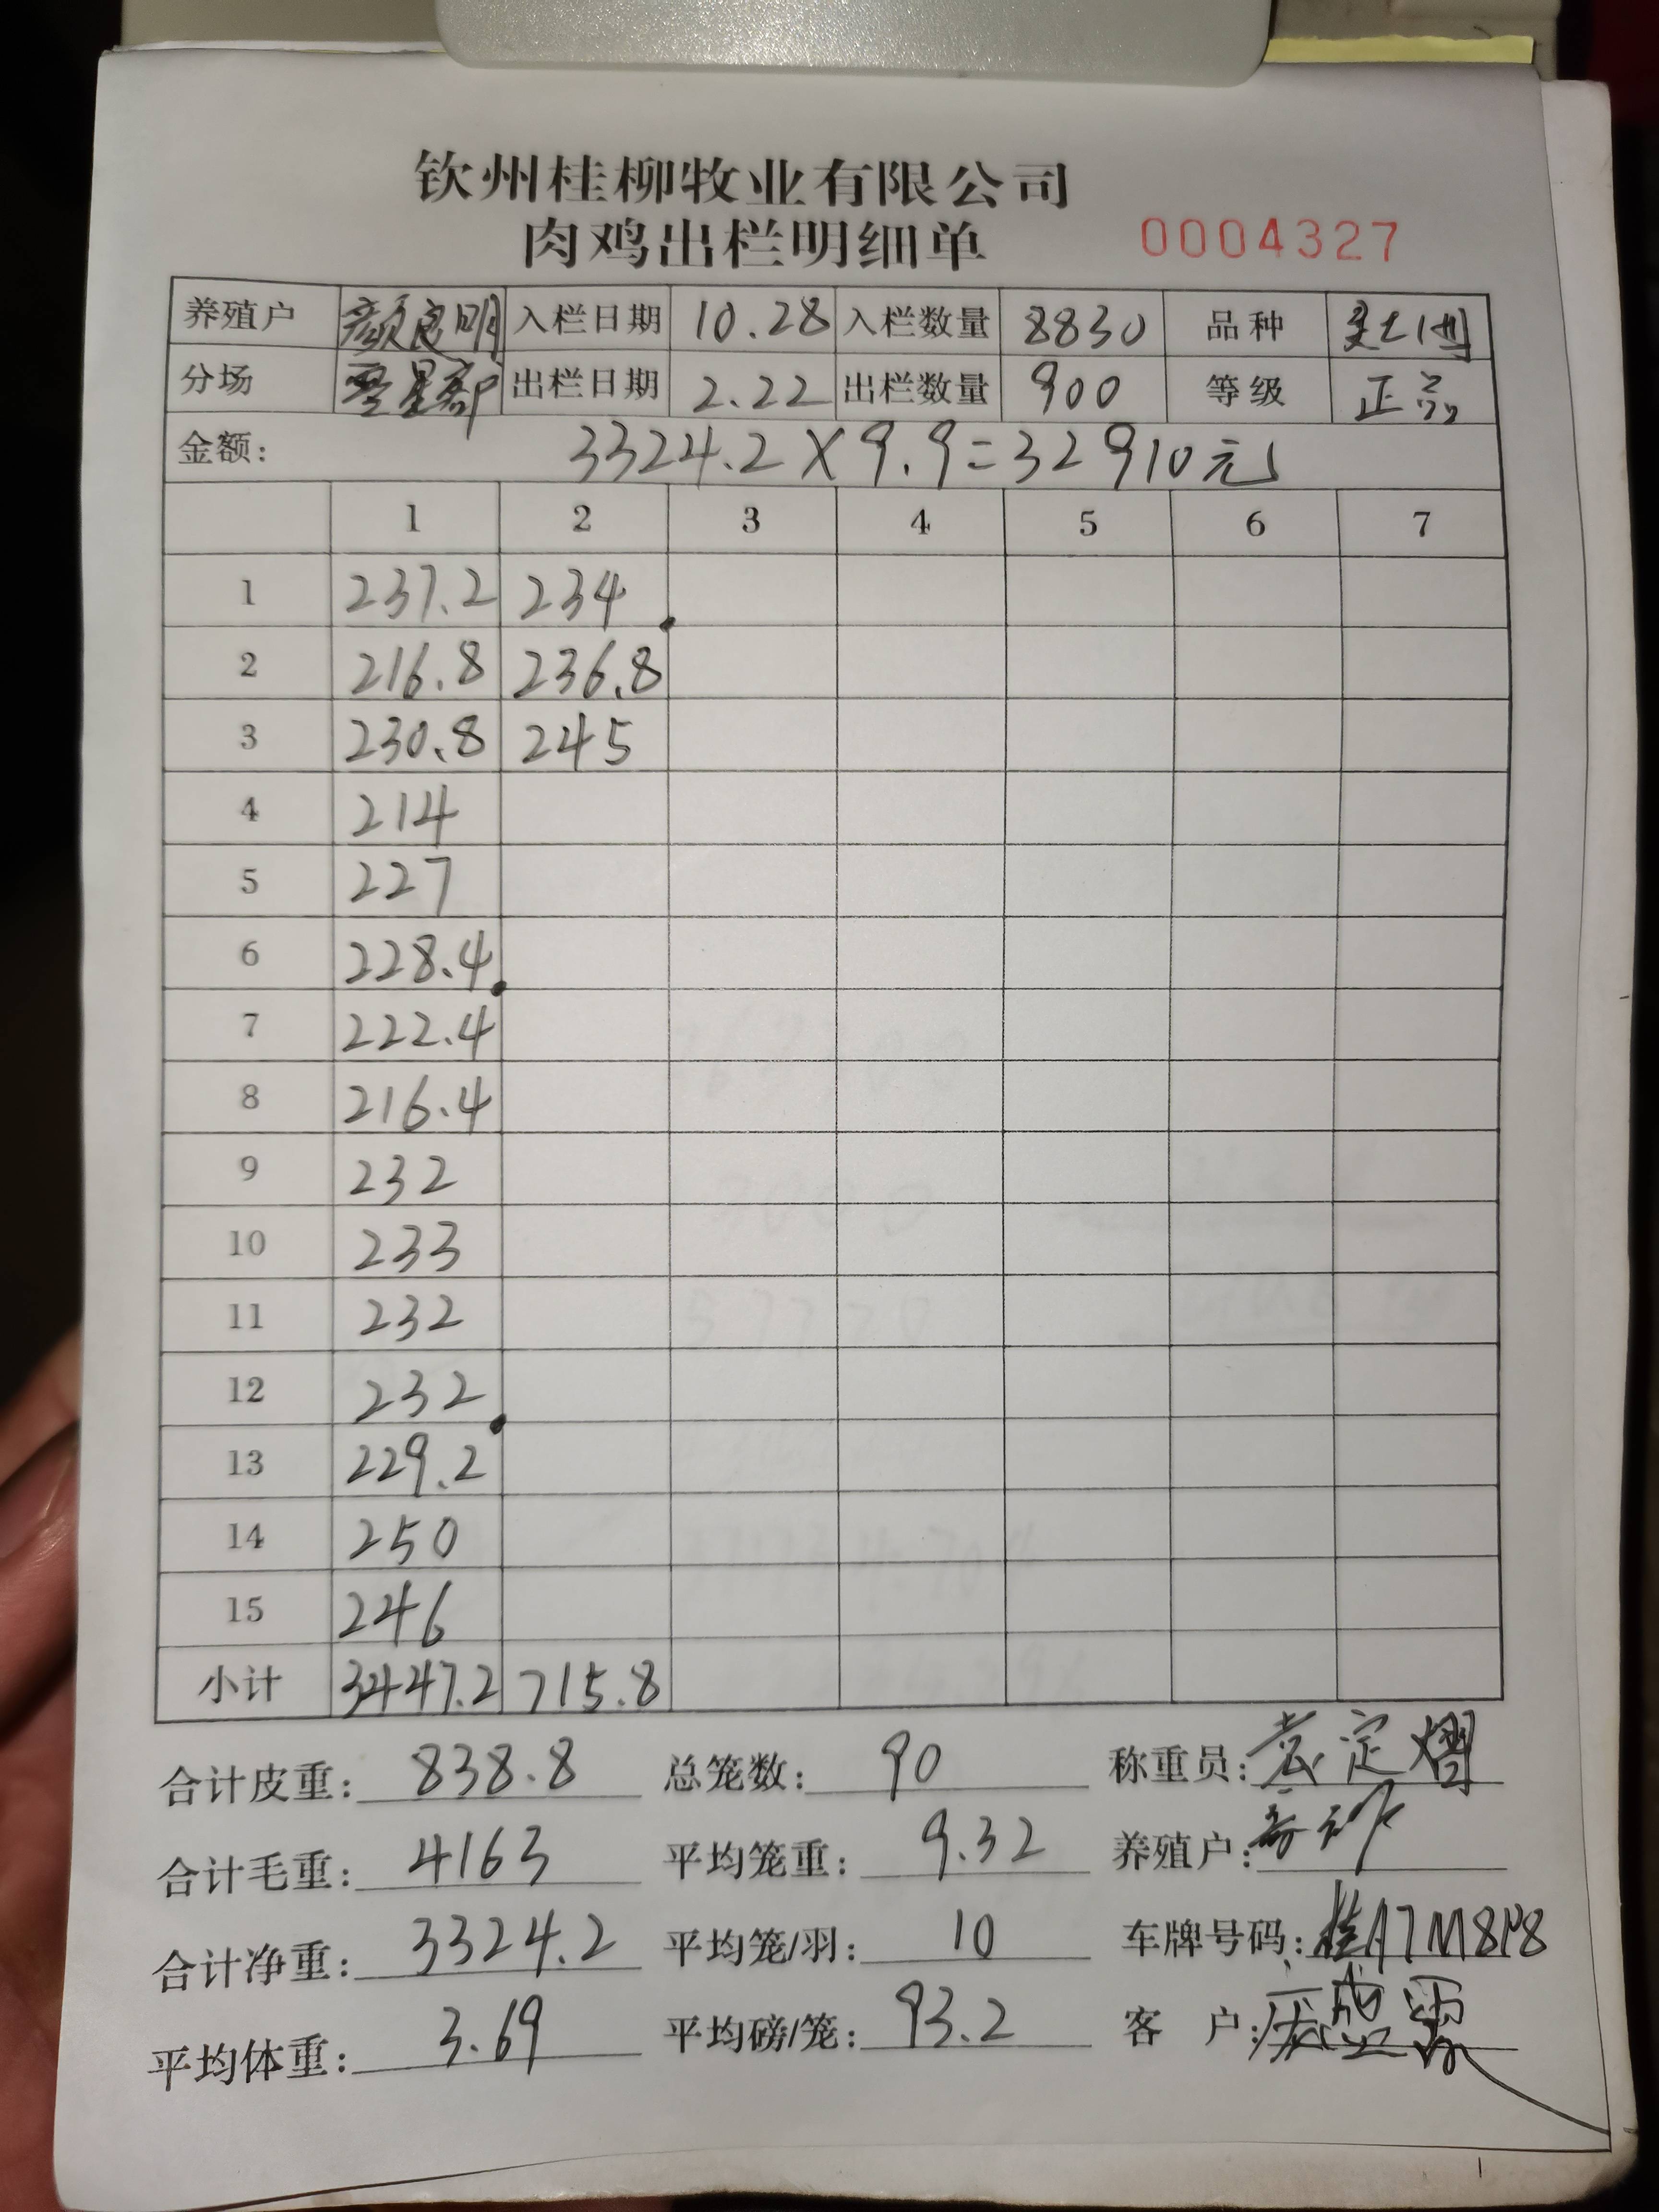 钦州桂柳牧业有限公司
肉鸡出栏明细单 0004327
养殖户 颜良明 入栏日期 10.28 入栏数量 8830 品种
分场 出栏日期 2.22 出栏数量 900 等级 正品
金额: 3324.2×9.9=32910元
1 2 3 4 5 6 7
1 237.2 234
2 216.8 236.8
3 230.8 245
4 214
5 227
6 228.4
7 222.4
8 216.4
9 232
10 233
11 232
12 232
13 229.2
14 250
15 246
小计 3447.2 715.8
合计皮重: 838.8 总笼数: 90 称重员: 定
合计毛重: 4163 平均笼重: 9.32 养殖户:
合计净重: 3324.2 平均笼/羽: 10 车牌号码:
平均体重: 3.69 平均磅/笼: 93.2 客 户: